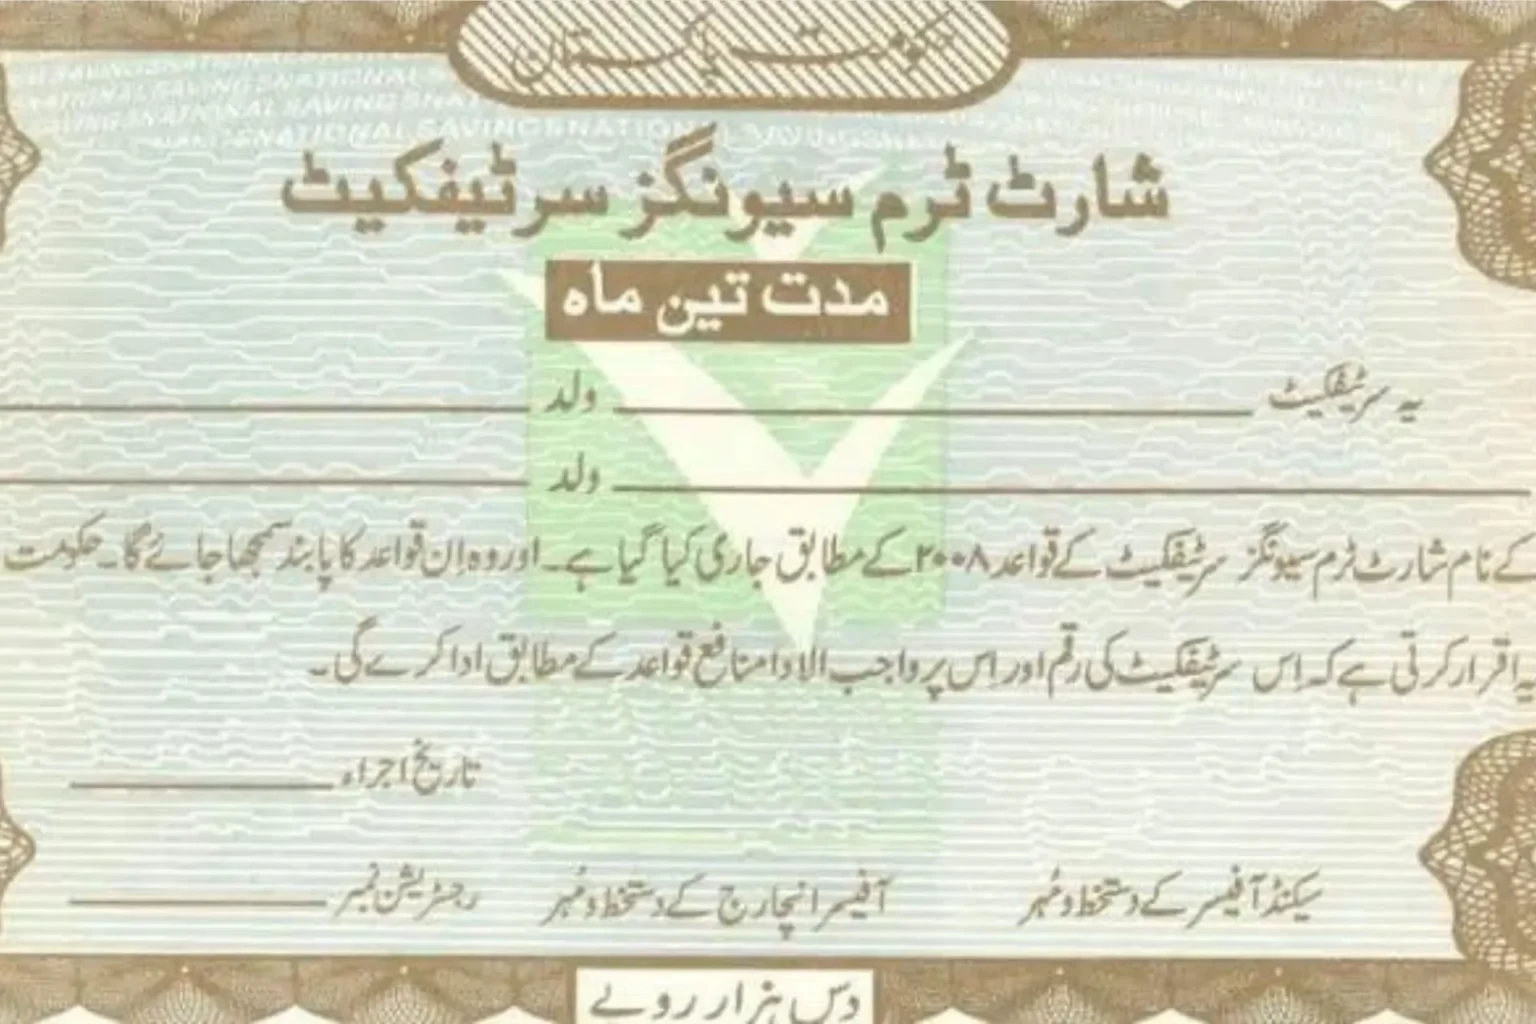 حکومت پاکستان
NATIONAL SAVINGS NATIONAL SAVINGS
شارٹ ٹرم سیونگز سرٹیفکیٹ
مدت تین ماہ
یہ سرٹیفکیٹ ولد
ولد
کے نام شارٹ ٹرم سیونگز سرٹیفکیٹ کے قواعد ۲۰۰۸ کے مطابق جاری کیا گیا ہے۔ اور وہ اِن قواعد کا پابند سمجھا جائے گا۔ حکومت
یہ اقرار کرتی ہے کہ اِس سرٹیفکیٹ کی رقم اور اِس پر واجب الادا منافع قواعد کے مطابق ادا کرے گی۔
تاریخ اجراء
سیکنڈ آفیسر کے دستخط و مُہر آفیسر انچارج کے دستخط و مُہر رجسٹریشن نمبر
دس ہزار روپے